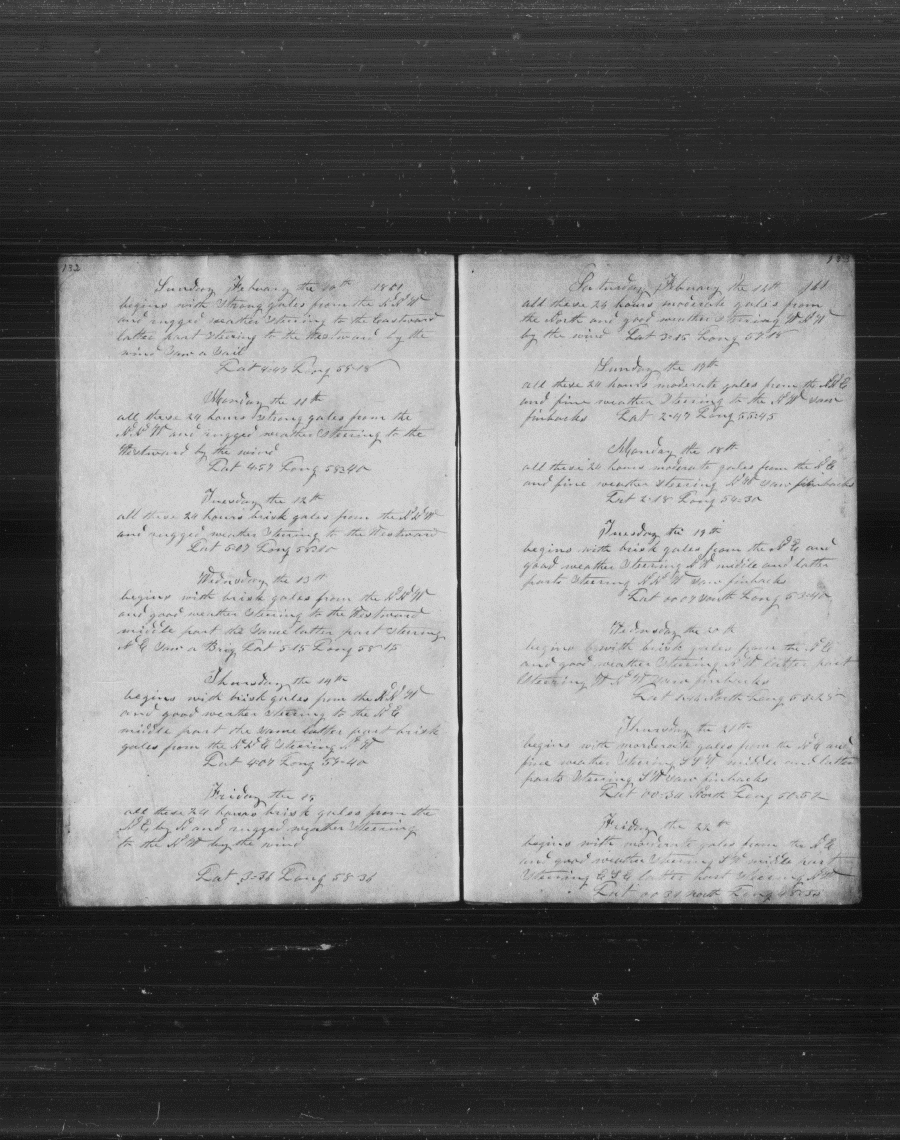 132
Sunday February the 10th 1861
begins with Strong gales from the N N W
and rugged weather Steering to the Eastward
latter part Steering to the Westward by the
wind Saw a Sail
Lat 4-47 Long 59-18
Monday the 11th
all these 24 hours Strong gales from the
N N W and rugged weather Steering to the
Westward by the wind
Lat 4-57 Long 58-40
Tuesday the 12th
all these 24 hours brisk gales from the N N W
and rugged weather Steering to the Westward
Lat 5-07 Long
Wednsday the 13th
begins with brisk gales from the N N W
and good weather Steering to the Westward
middle part the Same latter part Steering
N E Saw a Brig Lat 5-15 Long 58-15
Thursday the 14th
begins with brisk gales from the N N W
and good weather Steering to the N E
middle part the Same latter part brisk
gales from the N N E Steering N W
Lat 4-07 Long 59-40
Friday the 15
all these 24 hours brisk gales from the
N E by N and rugged weather Steering
to the N W by the wind
Lat 3-36 Long 58-36
133
Saturday February the 16th 1861
all these 24 hours moderate gales from
the North and good weather Steering W N W
by the wind Lat 3-15 Long 57-15
Sunday the 17th
all these 24 hours moderate gales from the N N E
and fine weather Steering to the N W Saw
finbacks Lat 2-47 Long 55-45
Monday the 18th
all these 24 hours moderate gales from the N E
and fine weather Steering N W Saw finbacks
Lat 2-18 Long 54-30
Tuesday the 19th
begins with brisk gales from the N E and
good weather Steering N W midle and latter
parts Steering N N W Saw finbacks
Lat 00-07 South Long 53-40
Wednsday the 20th
begins with brisk gales from the N E
and good weather Steering N W latter part
Steering W N W Saw finbacks
Lat North Long
Thursday the 21th
begins with morderate gales from the N E and
fine weather Steering S W middle and latter
parts Steering S W Saw finbacks
Lat 00-34 North Long 50-52
Friday the 22th
begins with moderate gales from the N E
and good weather Steering S W middle part
Steering E S E latter part Steering N W
Lat 00 30 North Long